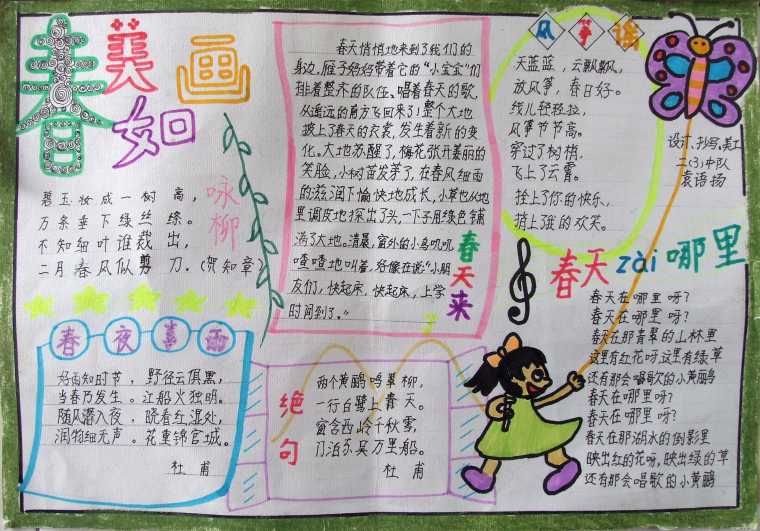 春美如画
咏柳
碧玉妆成一树高,
万条垂下绿丝绦。
不知细叶谁裁出,
二月春风似剪刀.(贺知章)
春夜喜雨
好雨知时节,野径云俱黑,
当春乃发生。江船火独明。
随风潜入夜,晓看红湿处,
润物细无声。花重锦官城。
杜甫
春天悄悄地来到了我们的
身边,雁子妈妈带着它的“小宝宝”们
排着整齐的队伍、唱着春天的歌
从遥远的南方飞回来了!整个大地
披上了春天的衣裳,发生着新的变
化。大地苏醒了,梅花张开美丽的
笑脸,小树苗发芽了,在春风细雨
的滋润下愉快地成长,小草也从地
里调皮地探出了头,一下子用绿色铺
满了大地。清晨,窗外的小鸟叽叽
喳喳地叫着,好像在说:“小朋
友们,快起床,快起床,上学
时间到了。”
春天来了
绝句
两个黄鹂鸣翠柳,
一行白鹭上青天。
窗含西岭千秋雪,
门泊东吴万里船。
杜甫
风筝谣
天蓝蓝,云飘飘,
放风筝,春日好。
线儿轻轻拉,
风筝节节高。
穿过了树梢,
飞上了云霄。
拴上了你的快乐,
捎上了我的欢笑。
设计、抄写、美工
二(3)中队
袁语扬
春天zài哪里
春天在哪里呀?
春天在哪里呀?
春天在那青翠的山林里
这里有红花呀这里有绿草
还有那会唱歌的小黄鹂
春天在哪里呀?
春天在哪里呀?
春天在那湖水的倒影里
映出红的花呀,映出绿的草
还有那会唱歌的小黄鹂